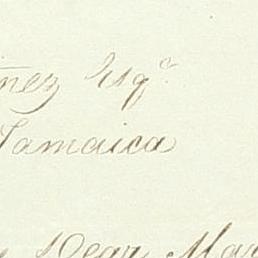 nez Esqe.
Jamaica
Dear Mar